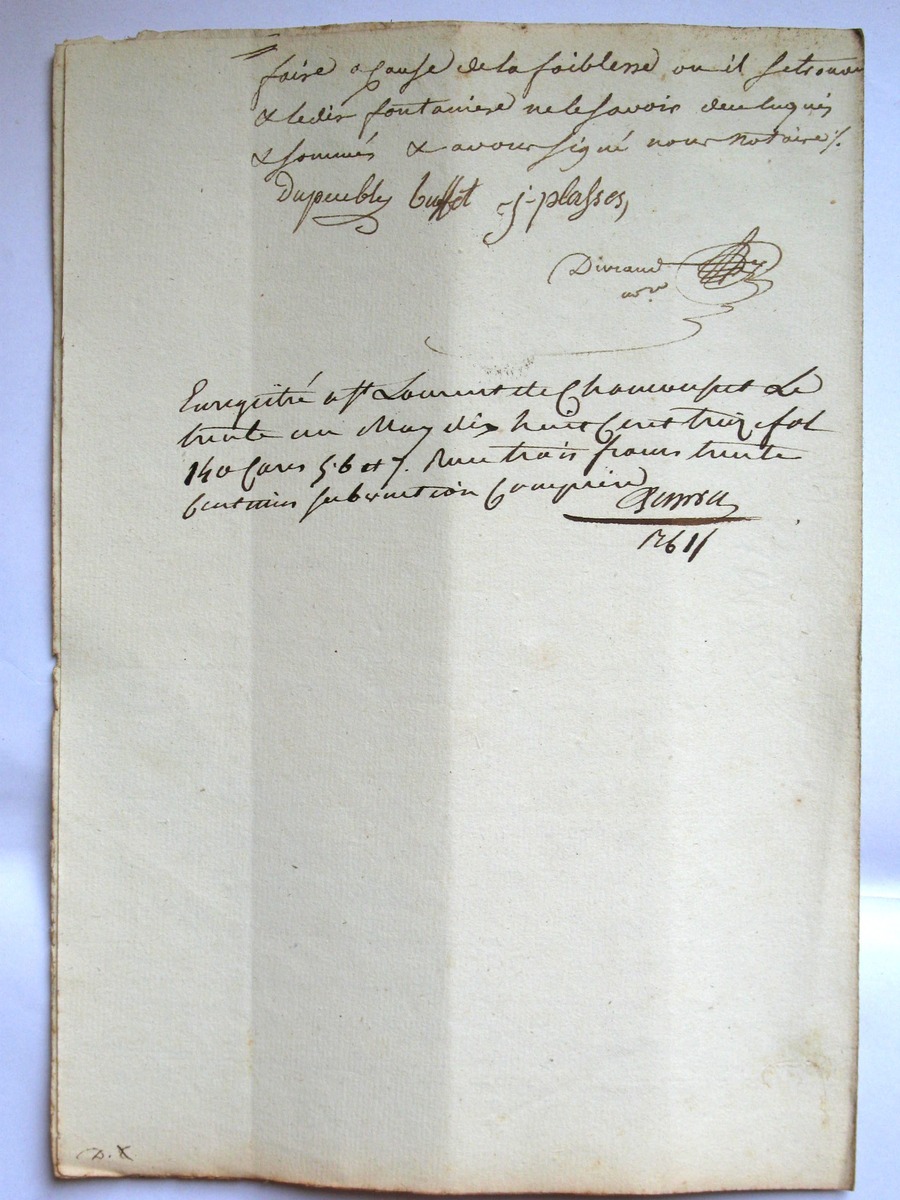 faire a Cause de la foiblesse ou il se trouve
& ledit fontaniere ne le savoir de ce Enquis
& sommés & avons signé nous notaire %.
Dupeuble buffet j-plasses,
Durand
nre
Enregistré a St Laurent de Chamousset Le
trente un May dix huit Cent treize fol
140 Cases 5. 6 et 7. Reçu trois francs trente
Centimes subvention Comprise
1261
D. X